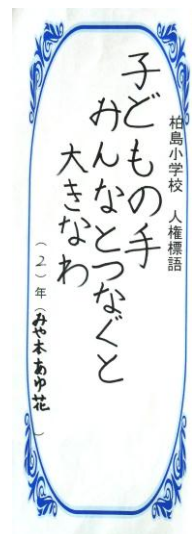 柏島小学校 人権標語
子どもの手
みんなとつなぐと
大きなわ
(2)年(みや本あゆ花)